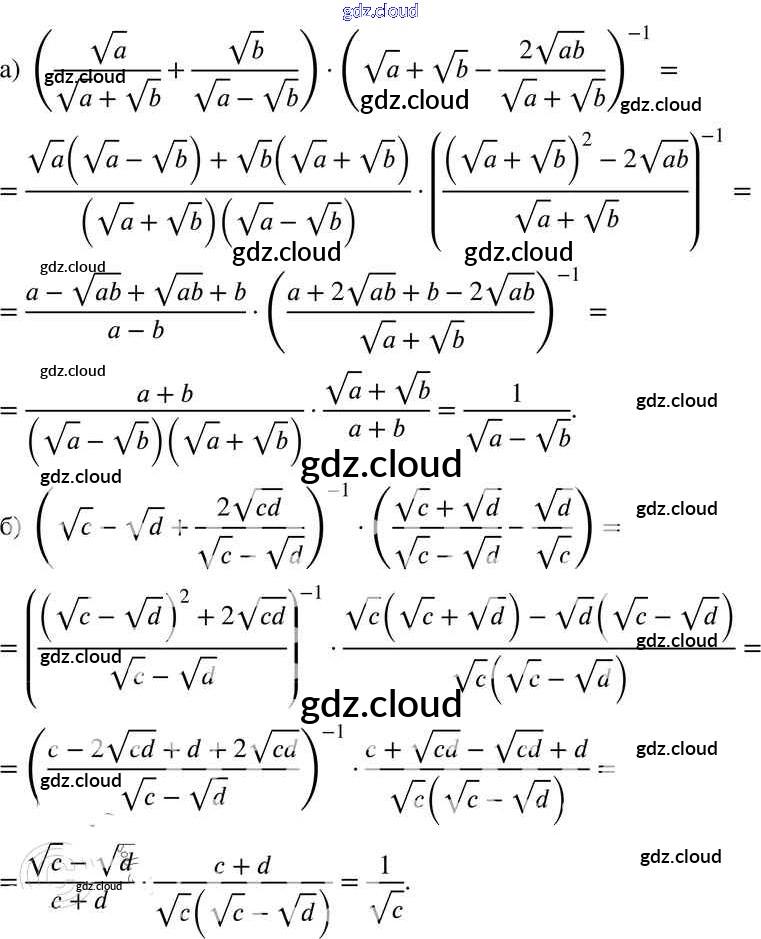 gdz.cloud
а) (√a/(√a + √b) + √b/(√a − √b)) · (√a + √b − 2√ab/(√a + √b))⁻¹ =
gdz.cloud gdz.cloud gdz.cloud
= (√a(√a − √b) + √b(√a + √b))/((√a + √b)(√a − √b)) · (((√a + √b)² − 2√ab)/(√a + √b))⁻¹ =
gdz.cloud gdz.cloud gdz.cloud
= (a − √ab + √ab + b)/(a − b) · ((a + 2√ab + b − 2√ab)/(√a + √b))⁻¹ =
gdz.cloud
= (a + b)/((√a − √b)(√a + √b)) · (√a + √b)/(a + b) = 1/(√a − √b).
gdz.cloud
gdz.cloud gdz.cloud
б) (√c − √d + 2√cd/(√c − √d))⁻¹ · ((√c + √d)/(√c − √d) − √d/√c) =
gdz.cloud
= (((√c − √d)² + 2√cd)/(√c − √d))⁻¹ · (√c(√c + √d) − √d(√c − √d))/(√c(√c − √d)) =
gdz.cloud gdz.cloud
gdz.cloud
= ((c − 2√cd + d + 2√cd)/(√c − √d))⁻¹ · (c + √cd − √cd + d)/(√c(√c − √d)) =
gdz.cloud gdz.cloud
= (√c − √d)/(c + d) · (c + d)/(√c(√c − √d)) = 1/√c.
gdz.cloud gdz.cloud